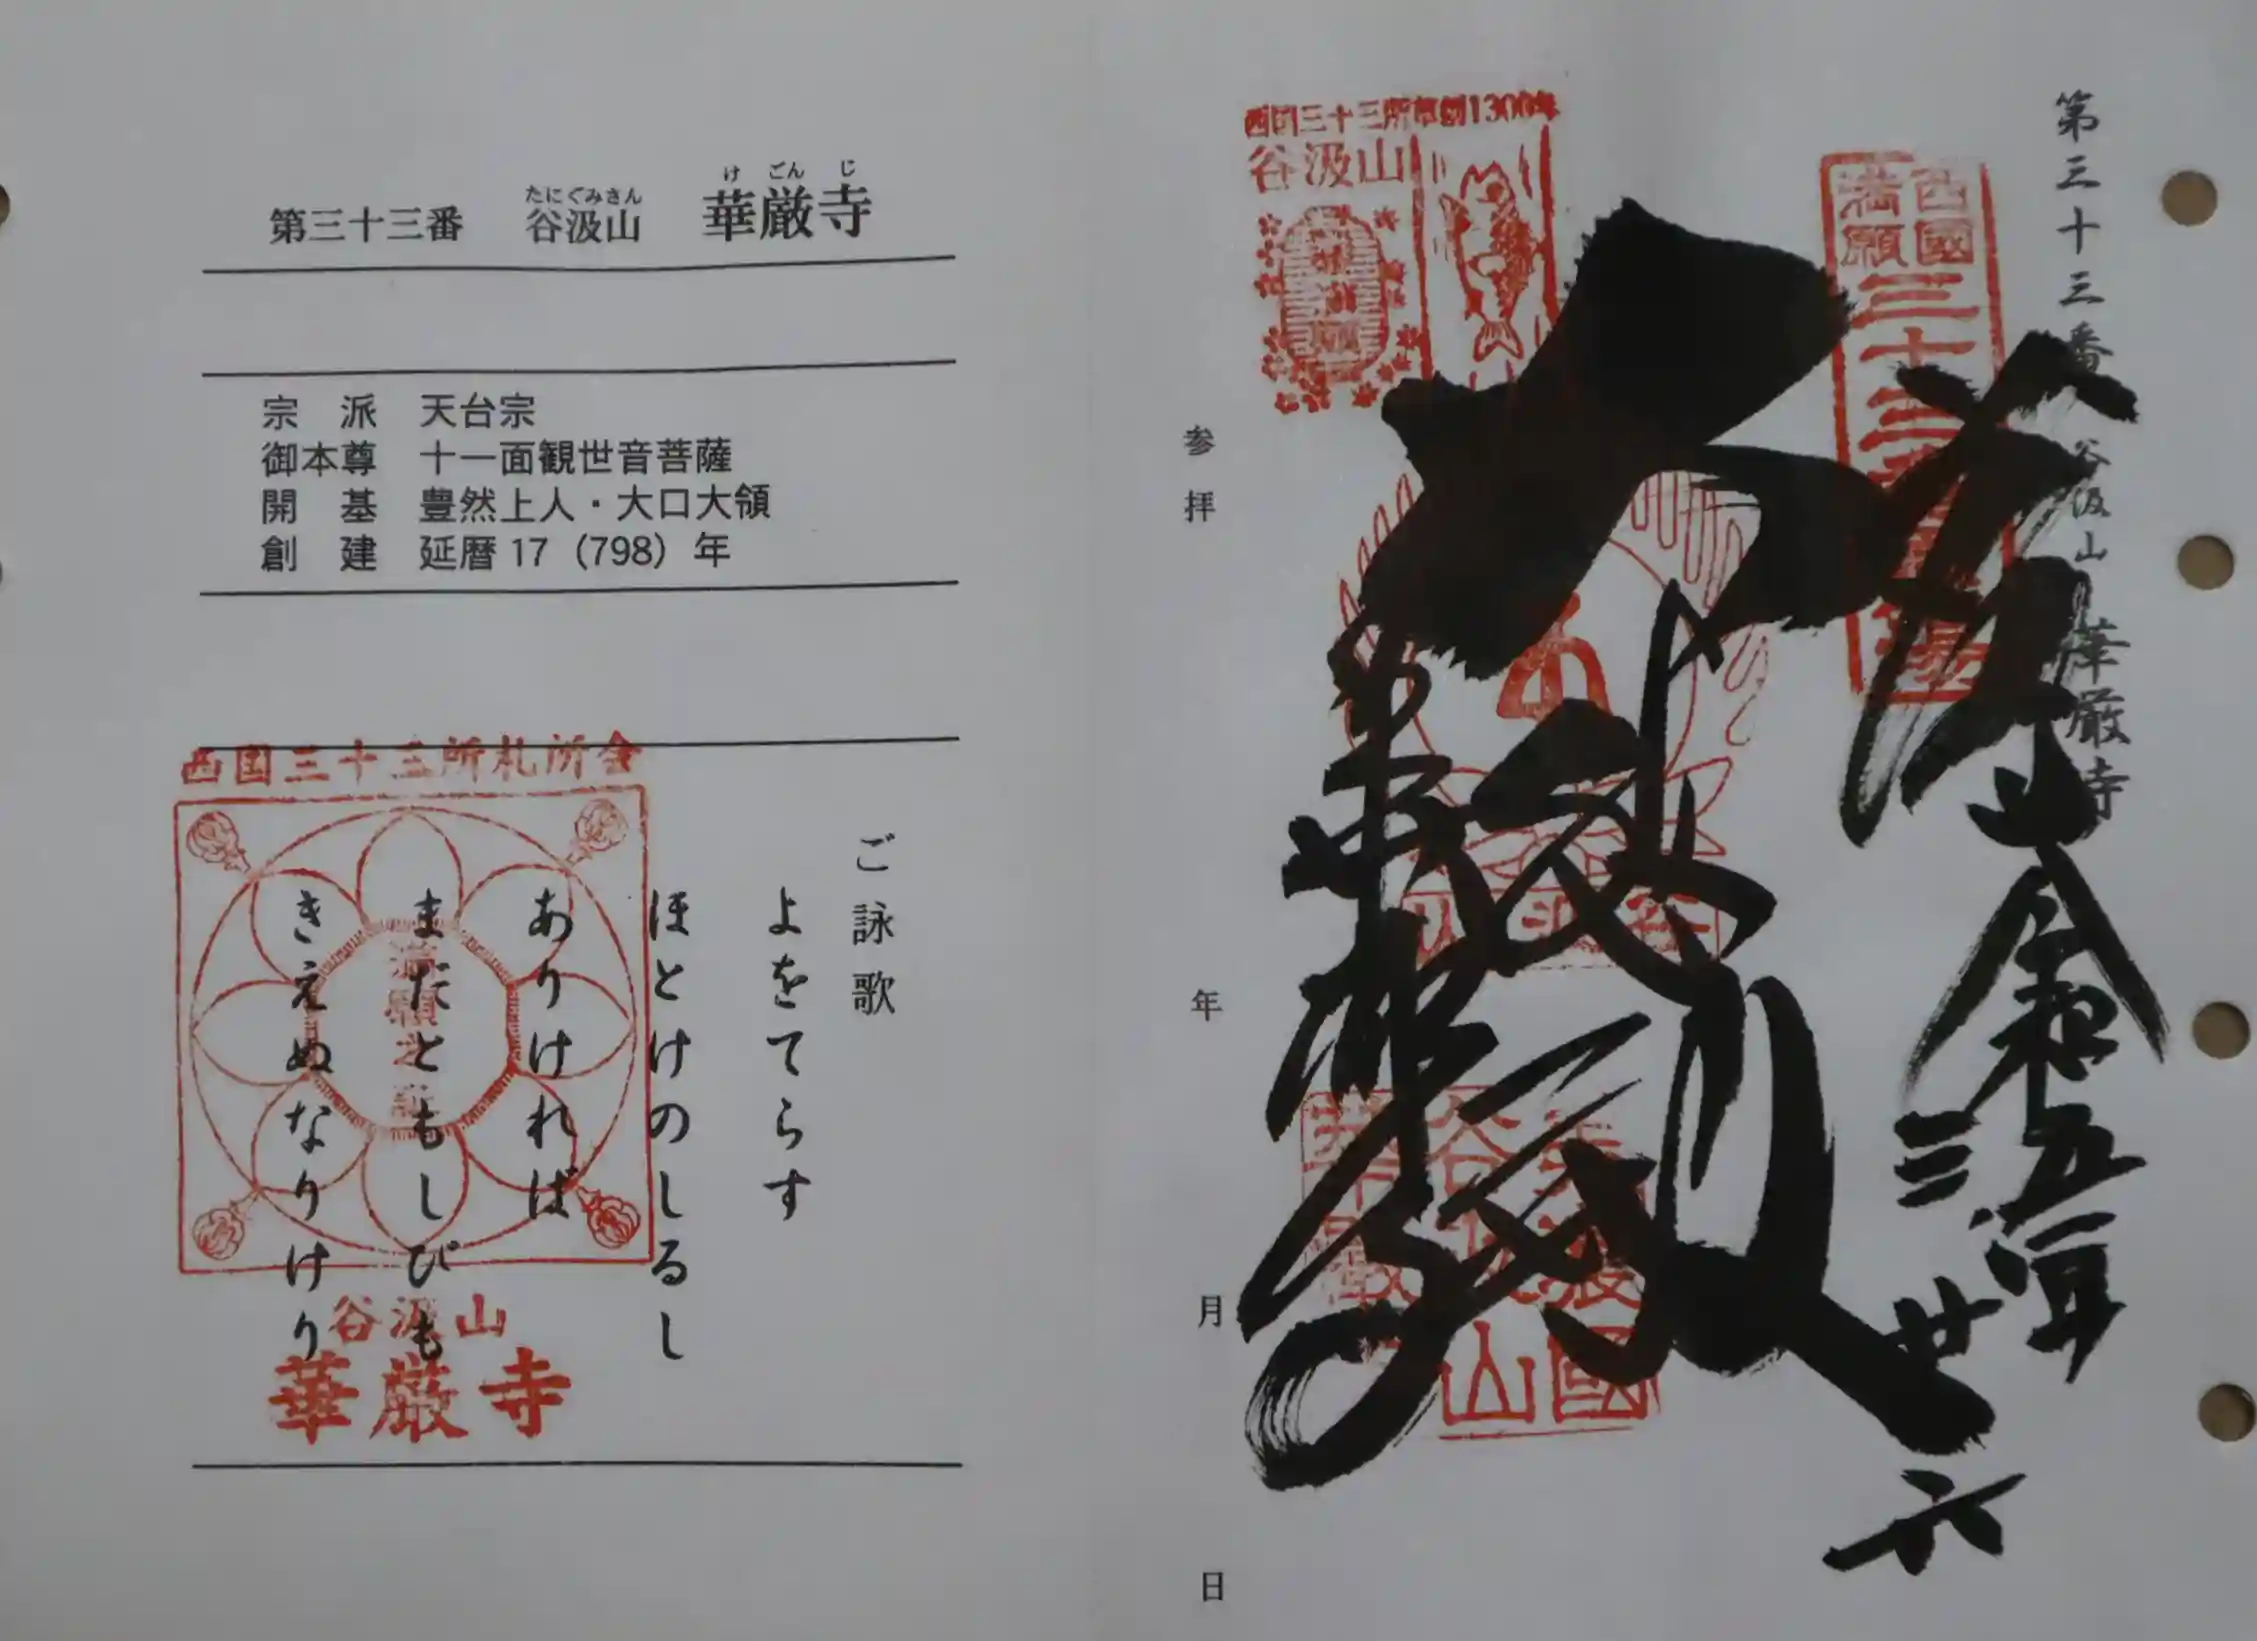 第三十三番 谷汲山 華厳寺
たにぐみさん けごんじ
宗 派 天台宗
御本尊 十一面観世音菩薩
開 基 豊然上人・大口大領
創 建 延暦17(798)年
ご詠歌
よをてらす
ほとけのしるし
ありければ
まだともしびも
きえぬなりけり
西国三十三所札所会
満願之証
谷汲山
華厳寺
第三十三番 谷汲山 華厳寺
西国三十三所草創1300年
谷汲山
西國
満願
三十三
奉拝
令和五年
三
廿六
大悲殿
華厳寺
参拝
年
月
日